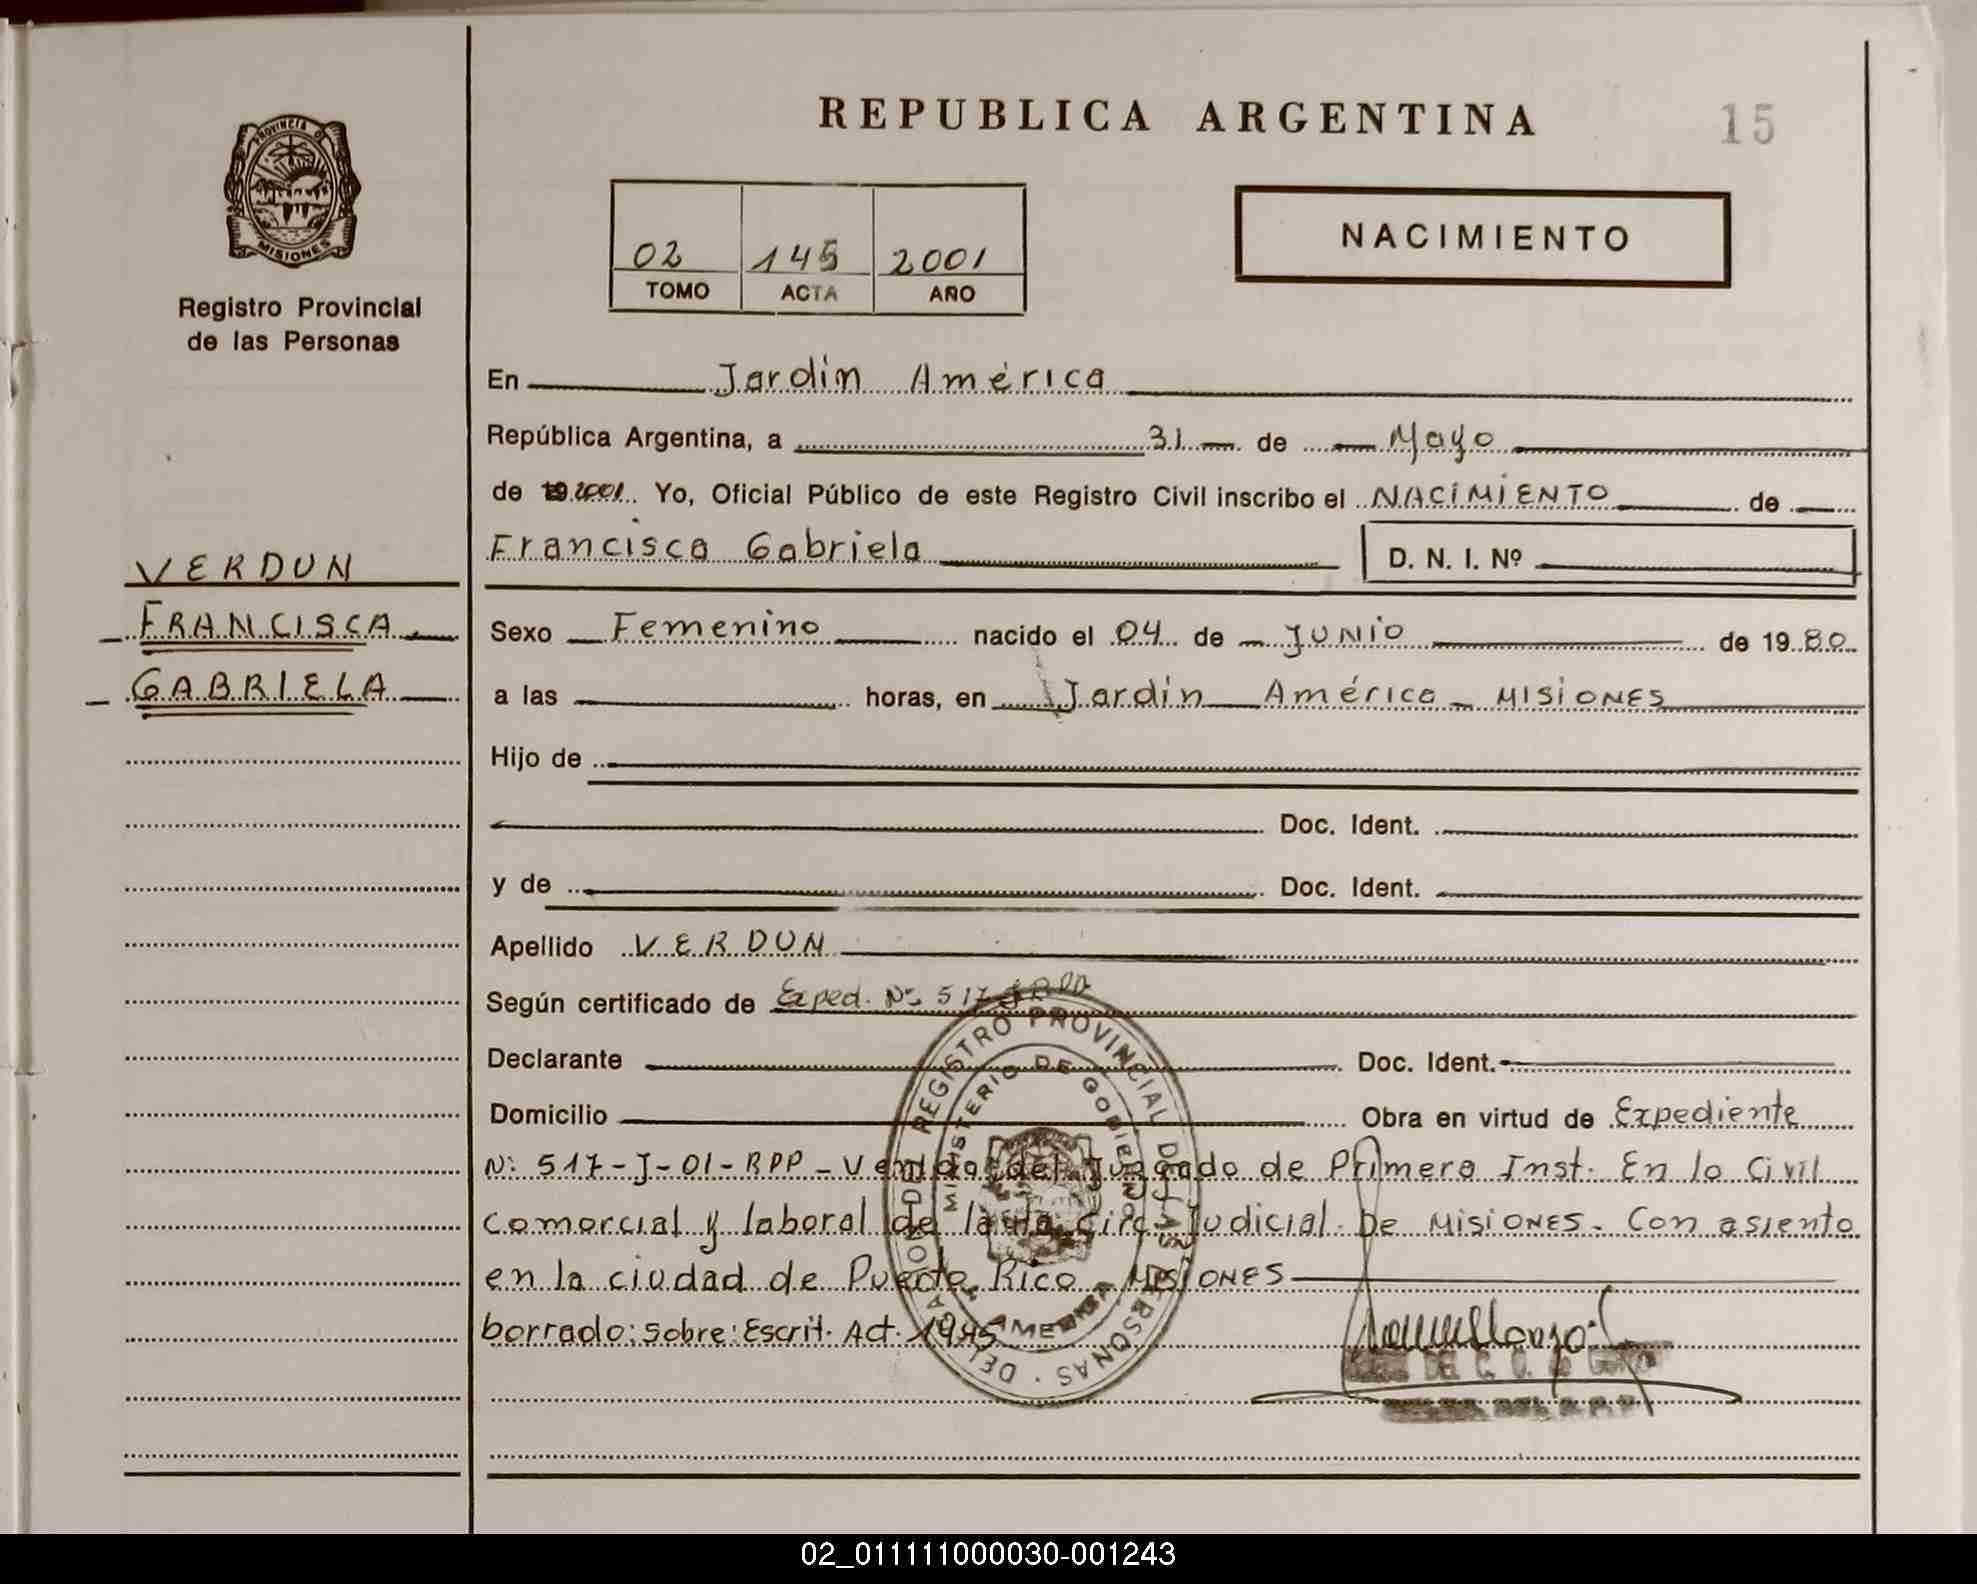 REPUBLICA ARGENTINA
15
PROVINCIA DE
MISIONES
Registro Provincial
de las Personas
02 145 2001
TOMO ACTA AÑO
NACIMIENTO
En Jardín América
República Argentina, a 31 de Mayo
de 19 2001. Yo, Oficial Público de este Registro Civil inscribo el NACIMIENTO de
Francisca Gabriela D. N. I. Nº
VERDUN
FRANCISCA
GABRIELA
Sexo Femenino nacido el 04 de JUNIO de 19 80
a las horas, en Jardín América - MISIONES
Hijo de
Doc. Ident.
y de Doc. Ident.
Apellido VERDUN
Según certificado de Exped. Nº 517
Declarante Doc. Ident.
Domicilio Obra en virtud de Expediente
Nº 517-J-01-RPP - del Juzgado de Primera Inst. En lo Civil
Comercial y laboral de la Circ. Judicial De MISIONES. Con asiento
en la ciudad de Puerto Rico MISIONES
borrado: Sobre: Escrit. Act. 1945
REGISTRO PROVINCIAL DE LAS PERSONAS
MINISTERIO DE GOBIERNO
DEL C. G.
02_011111000030-001243